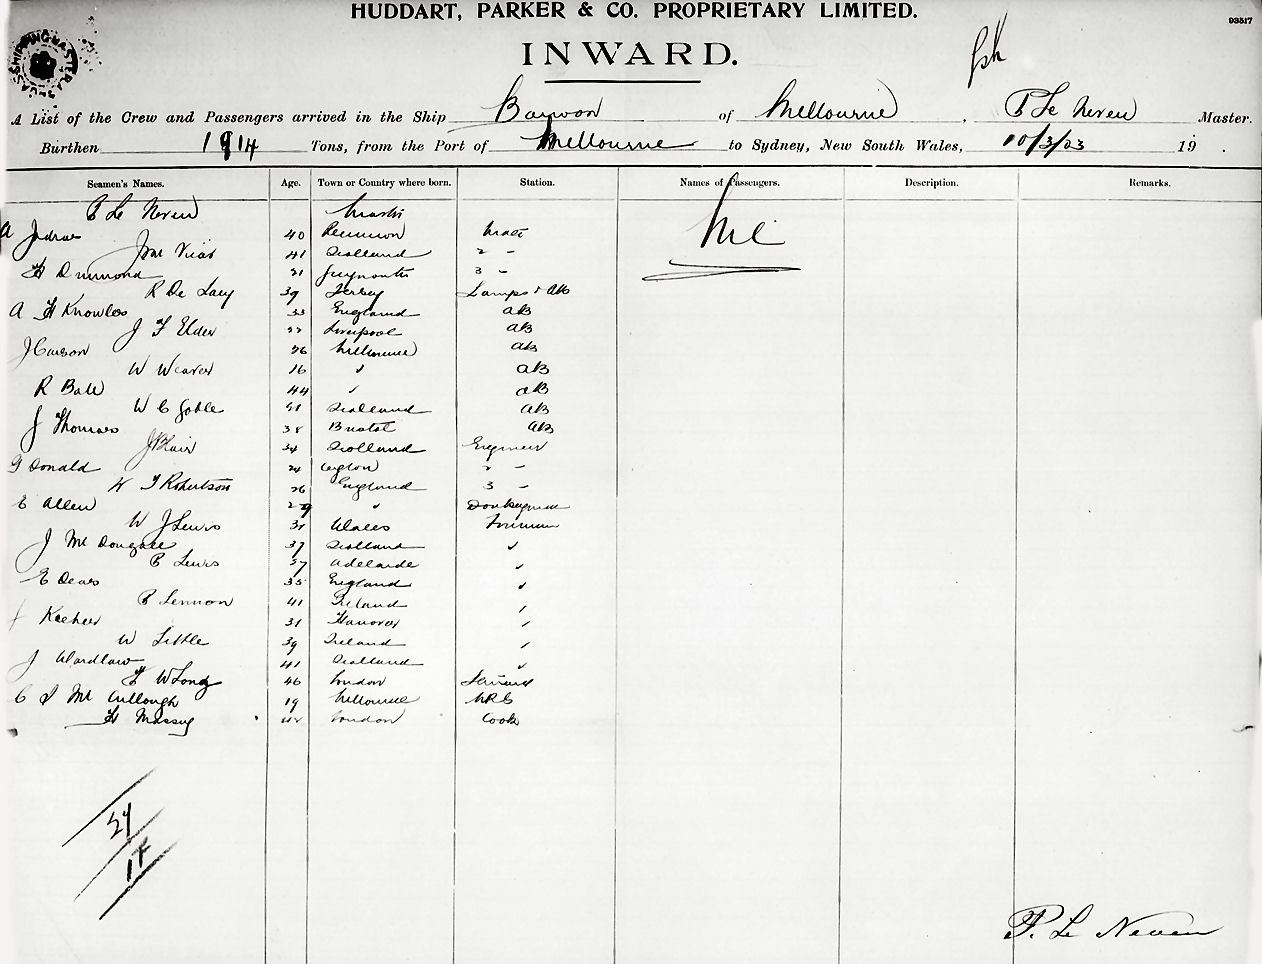 HUDDART, PARKER & CO. PROPRIETARY LIMITED.
93517
INWARD.
A List of the Crew and Passengers arrived in the Ship Barwon of Melbourne, P Le Neven Master.
Burthen 1914 Tons, from the Port of Melbourne to Sydney, New South Wales, 10/3/03 19 .
Seamen's Names. Age. Town or Country where born. Station. Names of Passengers. Description. Remarks.
P Le Neven Master
A 40 Reunion Mate Nil
Jas Vicar 41 Scotland 2 -
H Drummond 21 3 -
R De Lacy 39 Jersey Lamps & AB
A H Knowles 33 England AB
J F Elder 22 Liverpool AB
J Carson 26 Melbourne AB
W Weaver 16 " AB
R Ball 44 " AB
W C Goble Scotland AB
J Thomas 38 Bristol AB
J Blair 34 Scotland Engineer
G Donald 24 Ceylon 2 -
W T Robertson 26 England 3 -
E Allen 29 " Donkeyman
W J Lewis 31 Wales Fireman
J Mc Dougall 37 Scotland "
P Lewis 37 Adelaide "
E Deas 35 England "
P Lennon 41 Ireland "
J 31 Hanover "
W Little 39 Ireland "
J Wardlaw 41 Scotland "
F W Long 46 London Steward
C S Mc Cullough 19 Melbourne
H Massey London Cook
24
1F
P. Le Neven